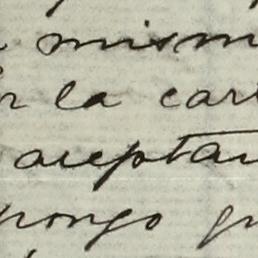 mism
r la car
aceptan
pongo qu